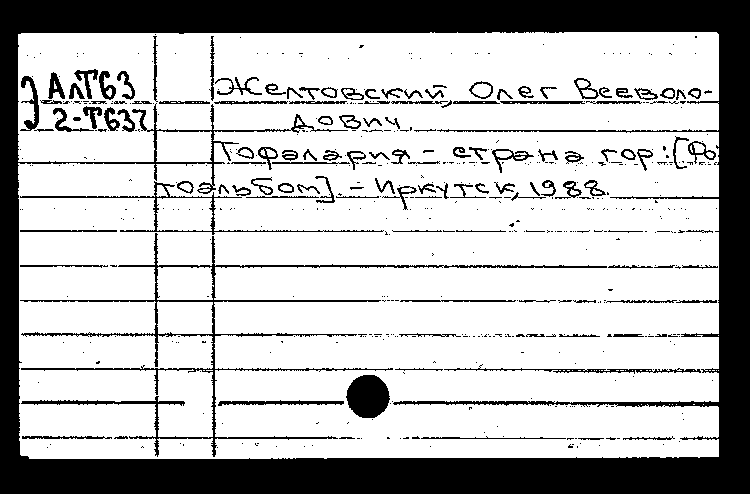 АлТ63
2-Т637
Желтовский, Олег Всеволо-
дович.
Тофалария - страна гор: [Фо-
тоальбом]. - Иркутск, 1988.